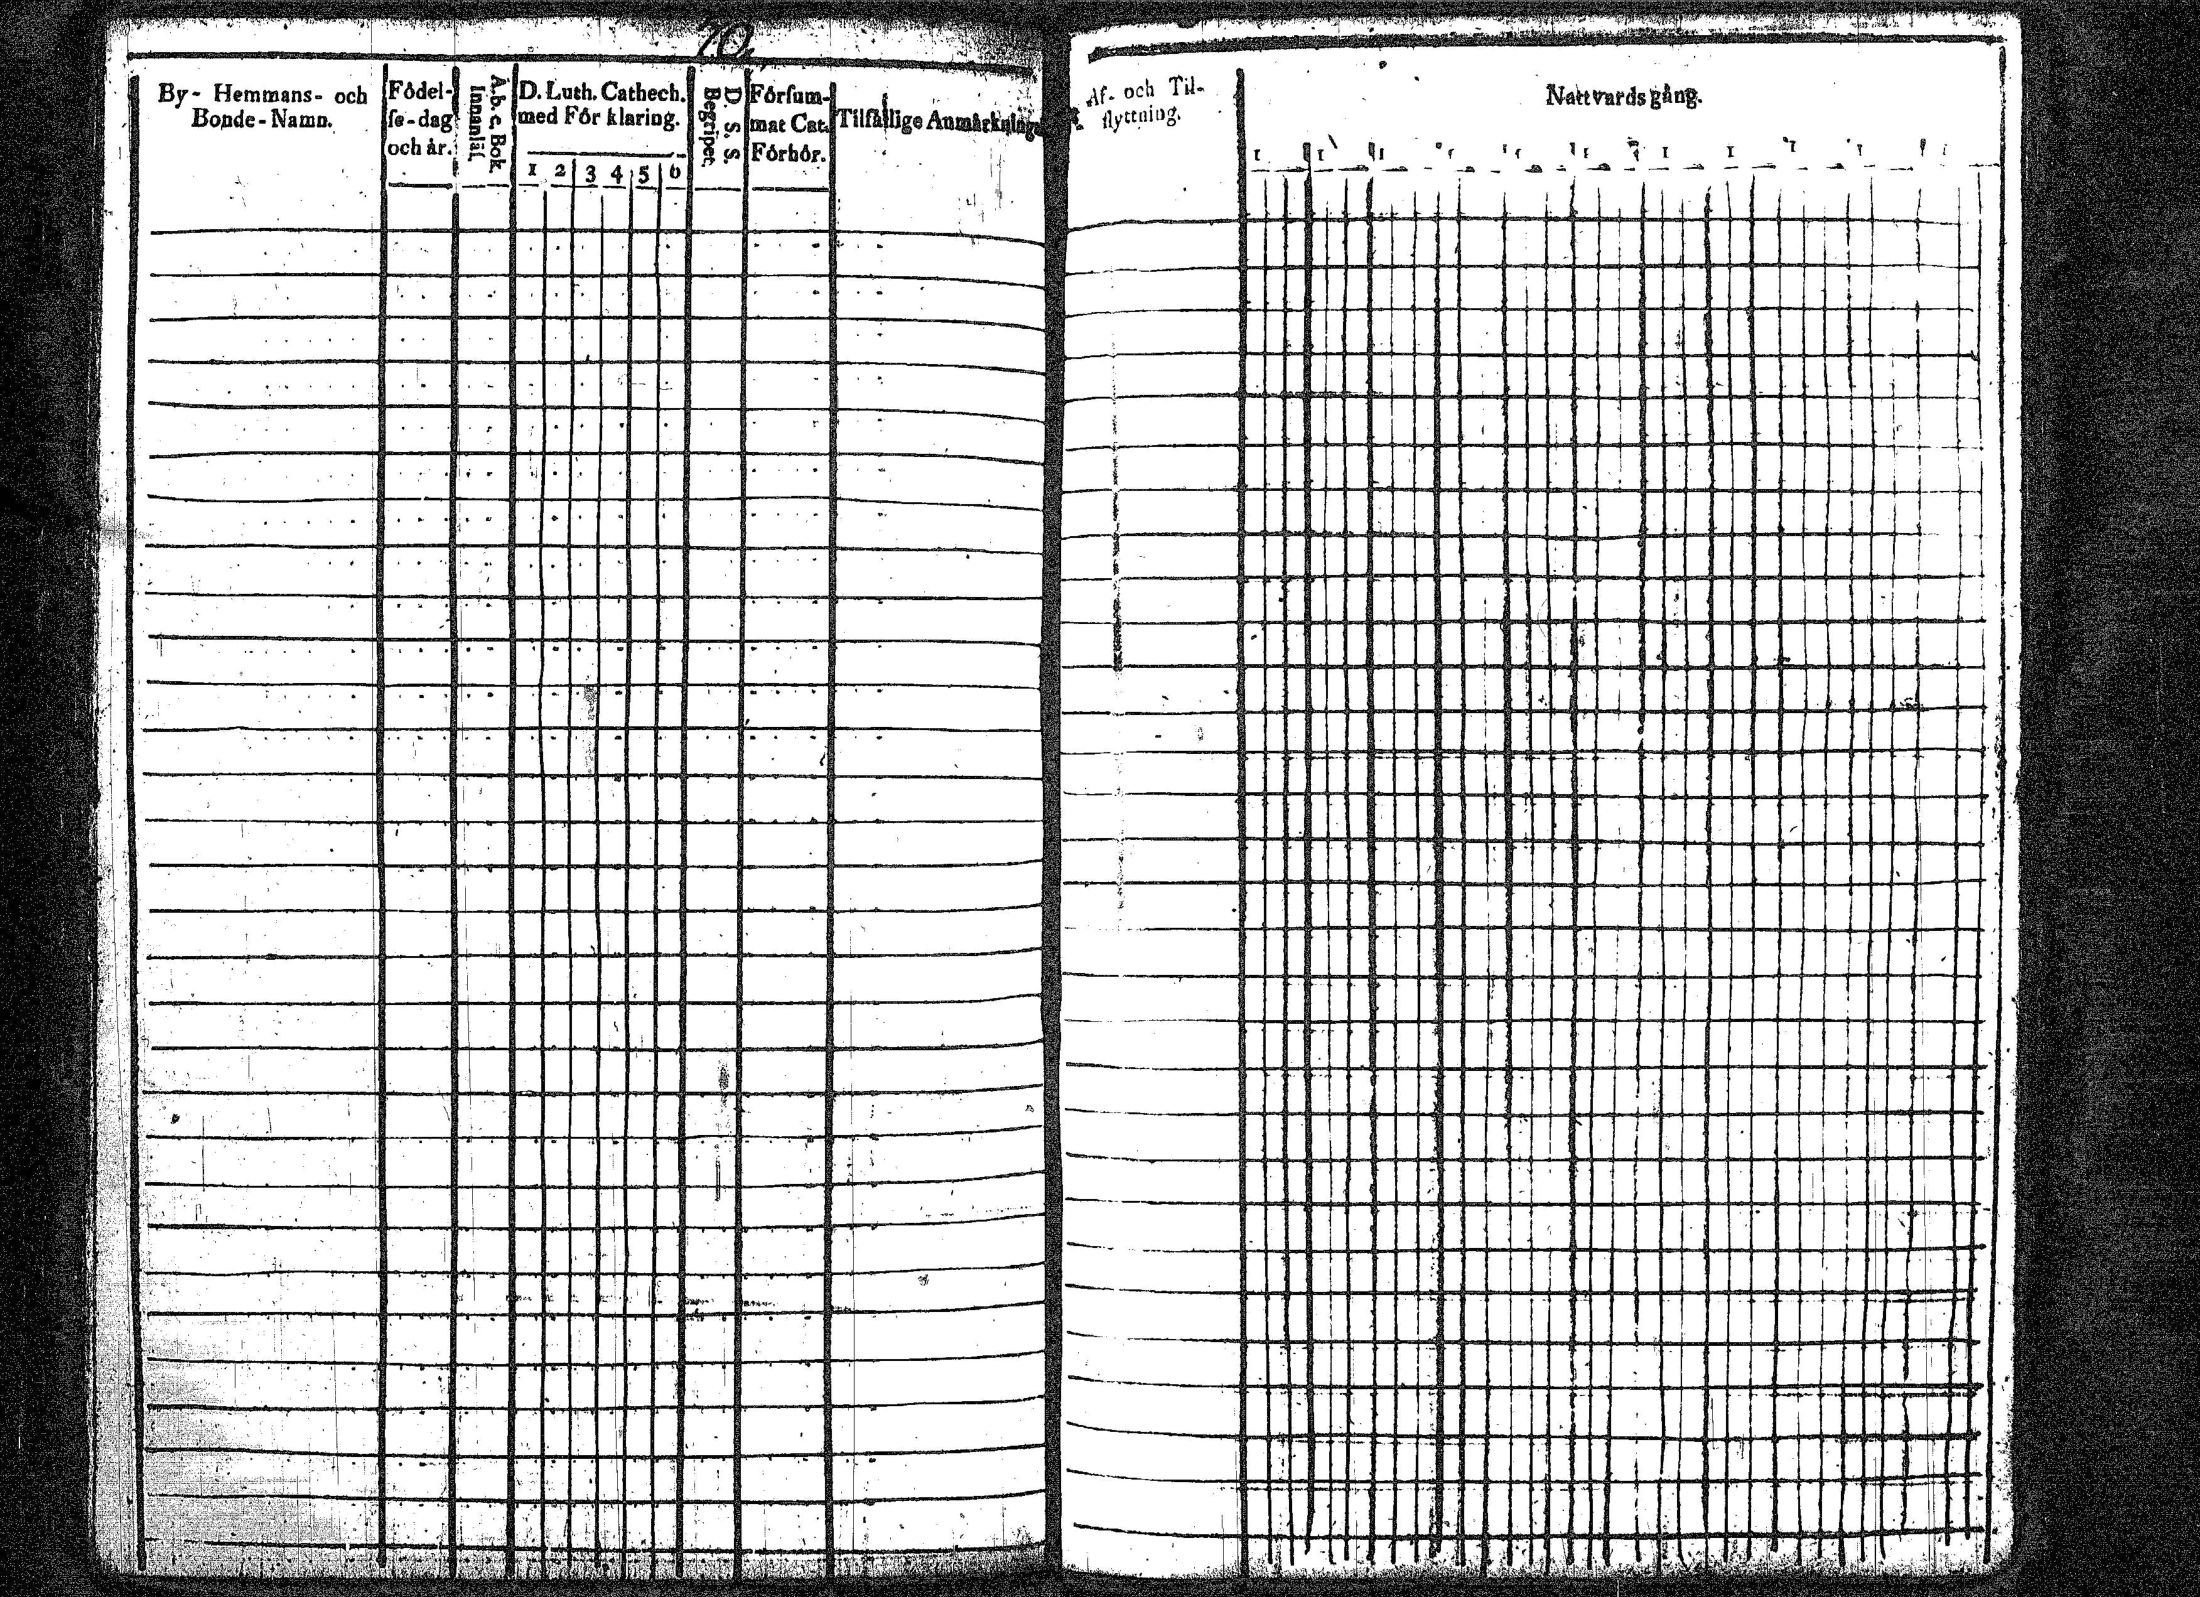 70.
By- Hemmans- och
Bonde-Namn.
Födel-
ſe-dag
och år.
A.b.c. Bok.
Innanläſ.
D. Luth. Cathech.
med För klaring.
1 2 3 4 5 6
D. S. S.
Begripet.
Förſum-
mat Cat.
Förhör.
Tilfällige Anmärkningar
Af- och Til-
flyttning.
Nattvards gång.
1 1 1 1 1 1 1 1 1 1 1